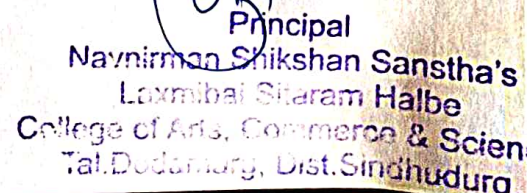 Principal
Navnirman Shikshan Sanstha's
Laxmibai Sitaram Halbe
College of Arts, Commerce & Scien
Tal.Dodamarg, Dist.Sindhudurg